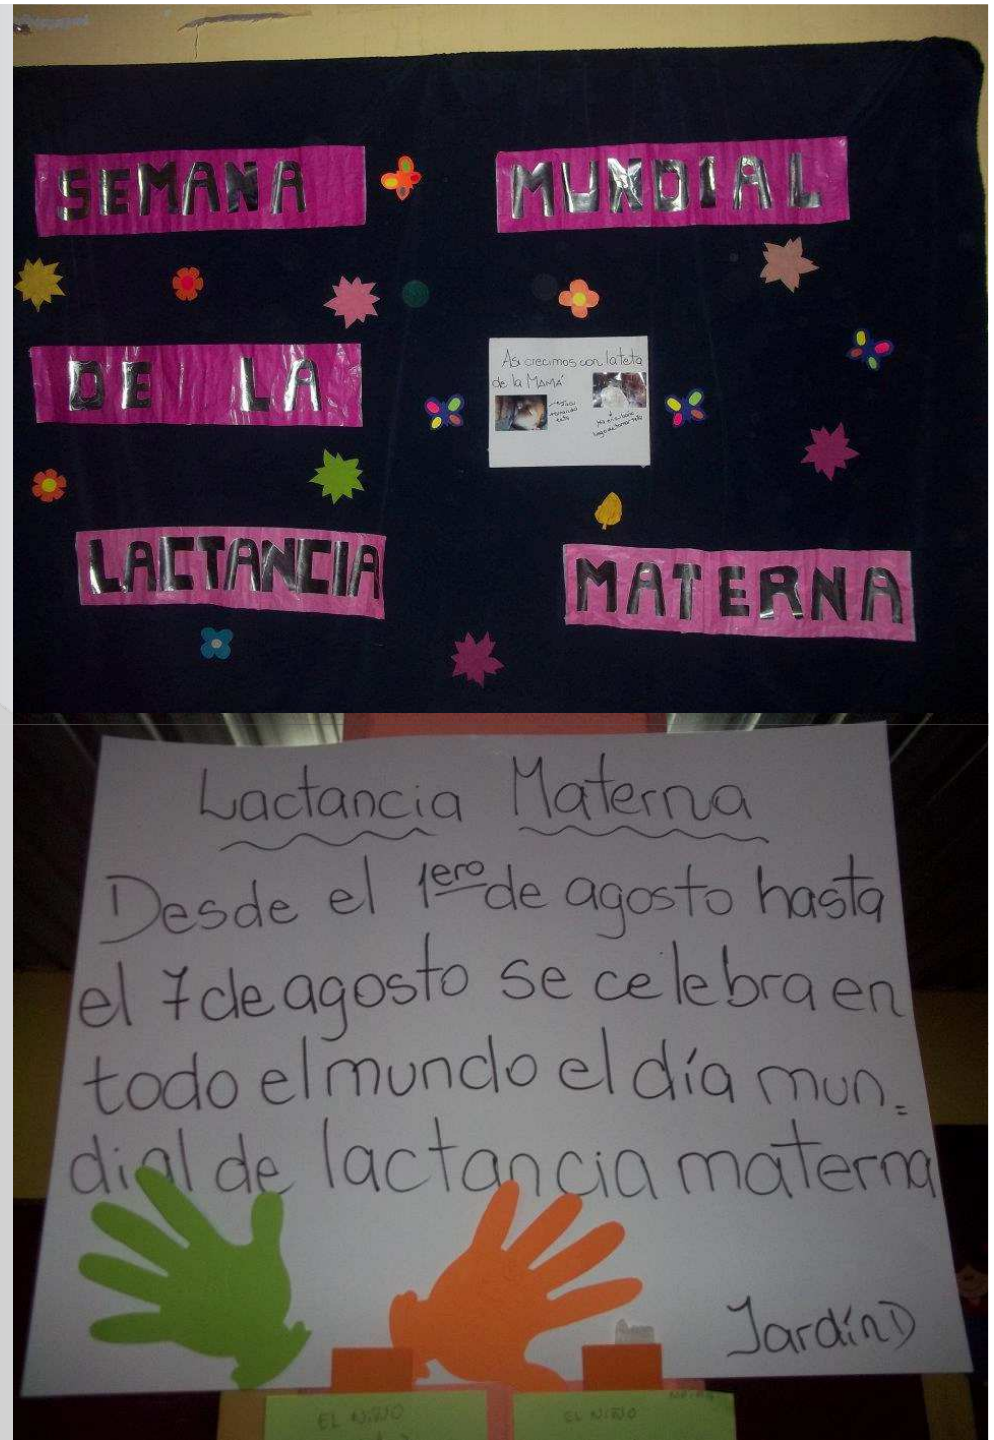 SEMANA MUNDIAL
DE LA
Así crecimos con la teta
de la MAMÁ
LACTANCIA MATERNA
Lactancia Materna
Desde el 1ero de agosto hasta
el 7 de agosto se celebra en
todo el mundo el día mun=
dial de lactancia materna
Jardín D
EL NIÑO
EL NIÑO